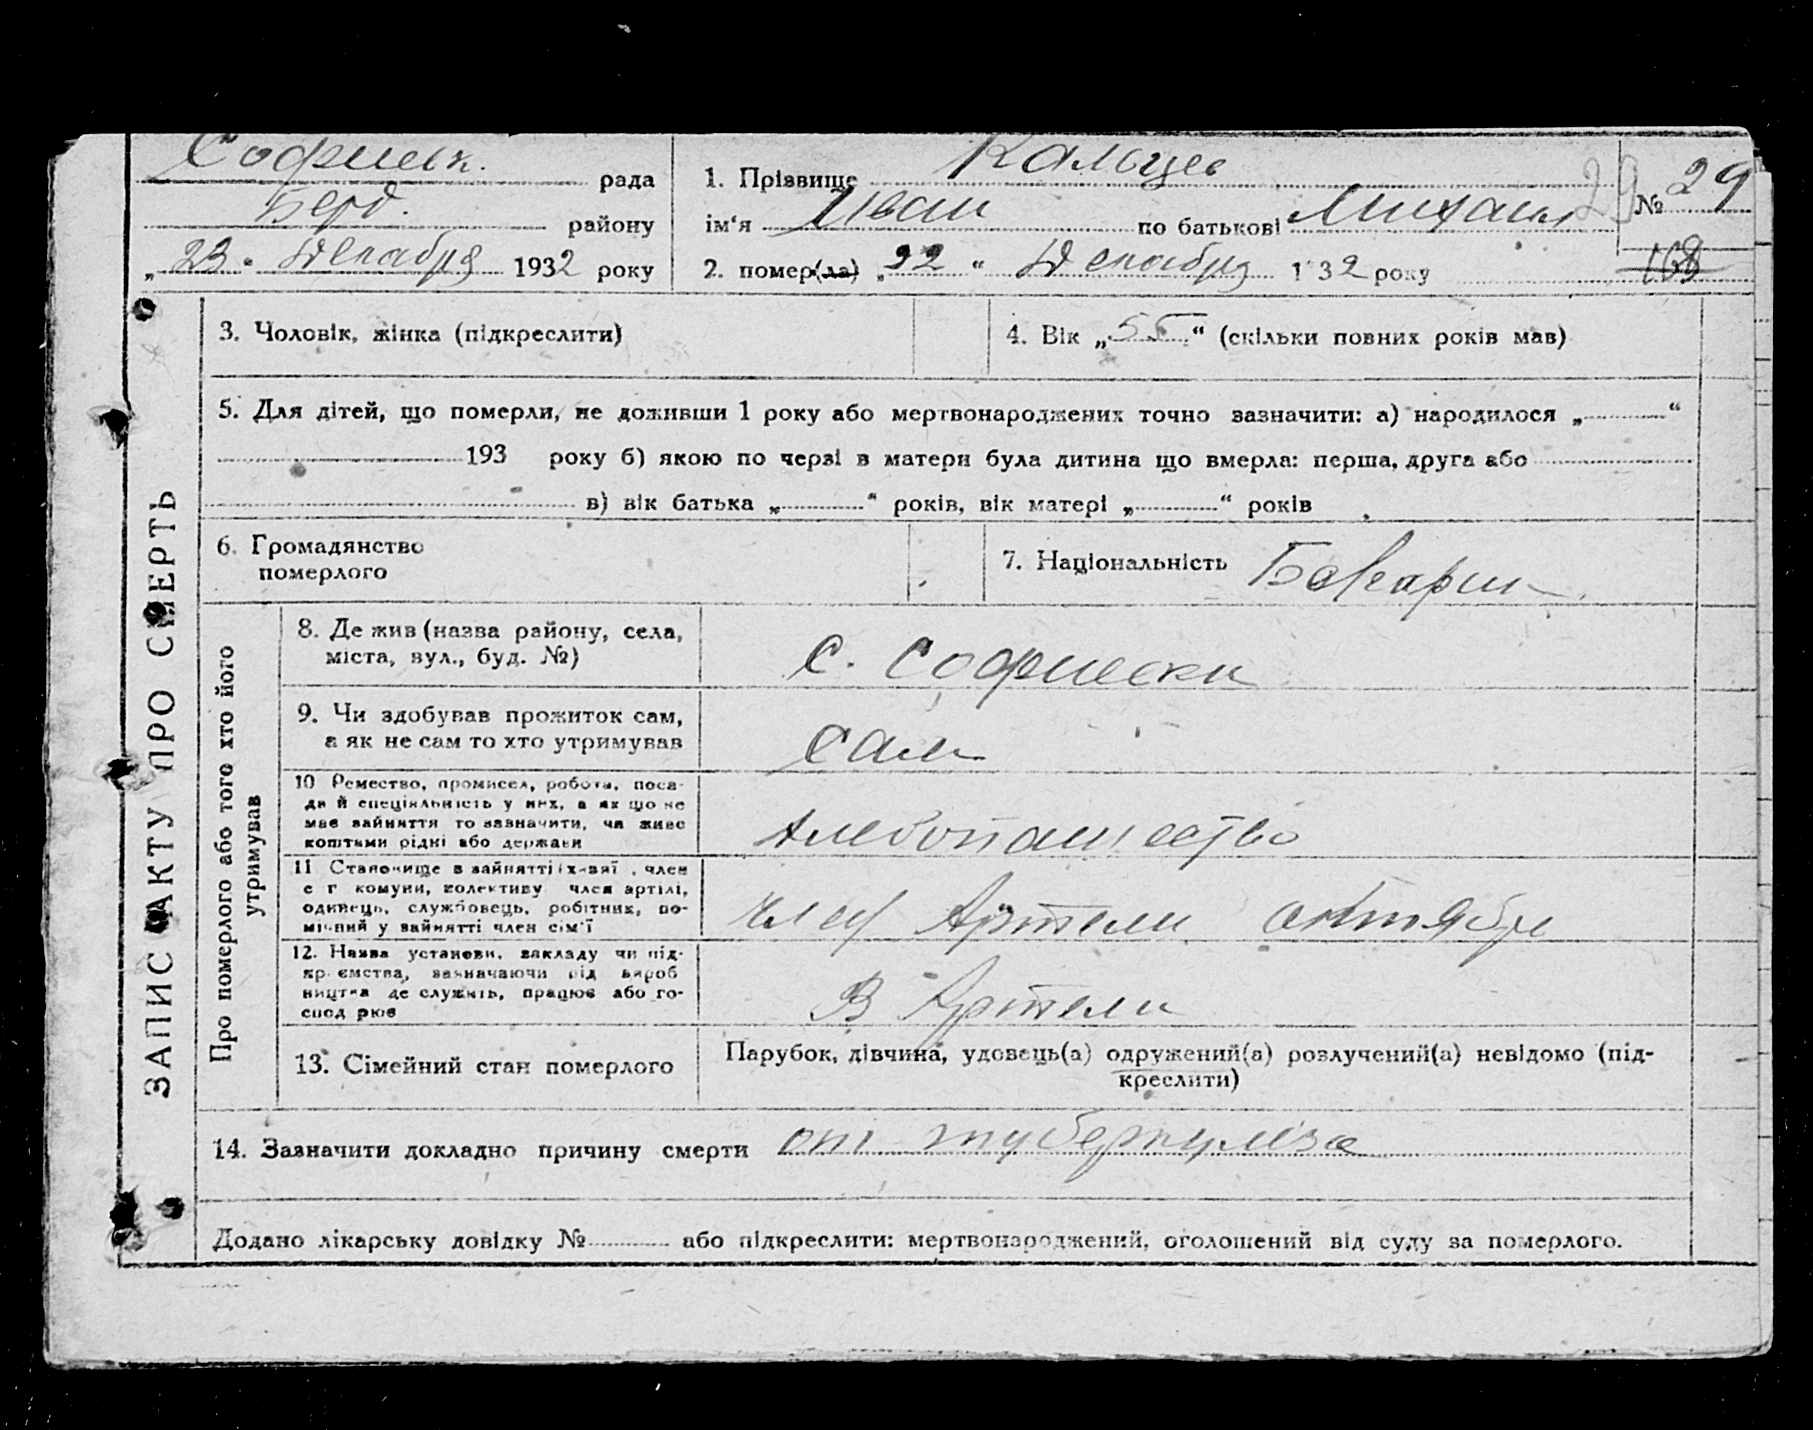 Софиевск. рада
Берд. району
„ 23 " Декабря 1932 року
1. Прізвище Кальчев
ім‘я Иван по батькові Михаил
2. помер(ла) „ 22 “ Декабря 1932 року
29 № 29
168
ЗАПИС АКТУ ПРО СМЕРТЬ
3. Чоловік, жінка (підкреслити)
4. Вік „ 55 “ (скільки повних років мав)
5. Для дітей, що померли, не доживши 1 року або мертвонароджених точно зазначити: а) народилося „ “
193 року б) якою по черзі в матери була дитина що вмерла: перша, друга або
в) вік батька „ “ років, вік матері „ “ років
6. Громадянство
померлого
7. Національність Болгарин
Про померлого або того хто його
утримував
8. Де жив (назва району, села,
міста, вул., буд. №)
с. Софиевки
9. Чи здобував прожиток сам,
а як не сам то хто утримував
сам
10 Ремество, промисел, робота, поса-
да й спеціяльність у них, а як що не
має зайняття то зазначити, чи живе
коштами рідні або держави
хлебопашество
11 Становище в зайнятті , член
с г комуни, колективу член артілі,
одинець, службовець, робітник, по-
мічний у зайнятті член сім‘ї
член Артели октября
12. Назва установи, закладу чи під-
приємства, зазначаючи від вироб
ництва де служить, працює або го-
спод рює
В Артели
13. Сімейний стан померлого
Парубок, дівчина, удовець(а) одружений(а) розлучений(а) невідомо (під-
креслити)
14. Зазначити докладно причину смерти от туберкулёза
Додано лікарську довідку № або підкреслити: мертвонароджений, оголошений від суду за померлого.